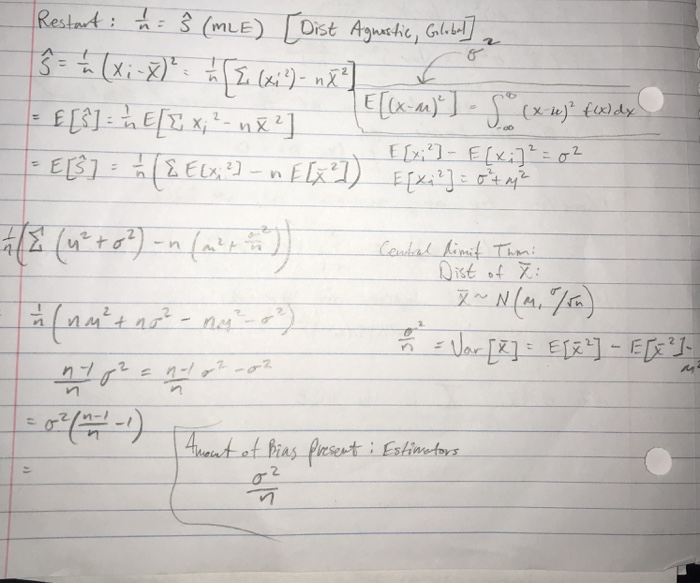 Restart : 1/n = Ŝ (MLE) [Dist Agnostic, Global]
σ²
Ŝ = 1/n (xi - x̄)² = 1/n [Σ (xi²) - n x̄²]
E[(x-μ)²] = ∫_{-∞}^{∞} (x-μ)² f(x)dx
= E[Ŝ] = 1/n E[Σ xi² - n x̄²]
= E[Ŝ] = 1/n (Σ E[xi²] - n E[x̄²])
E[xi²] - E[xi]² = σ²
E[xi²] = σ² + μ²
1/n (Σ (μ² + σ²) - n (μ² + σ²/n))
Central Limit Thm:
Dist of x̄:
x̄ ~ N(μ, σ/√n)
1/n (nμ² + nσ² - nμ² - σ²)
σ²/n = Var[x̄] = E[x̄²] - E[x̄²]-
μ²
n-1/n σ² = n-1/n σ² - σ²
= σ² (n-1/n - 1)
Amount of Bias Present : Estimators
σ²/n
=